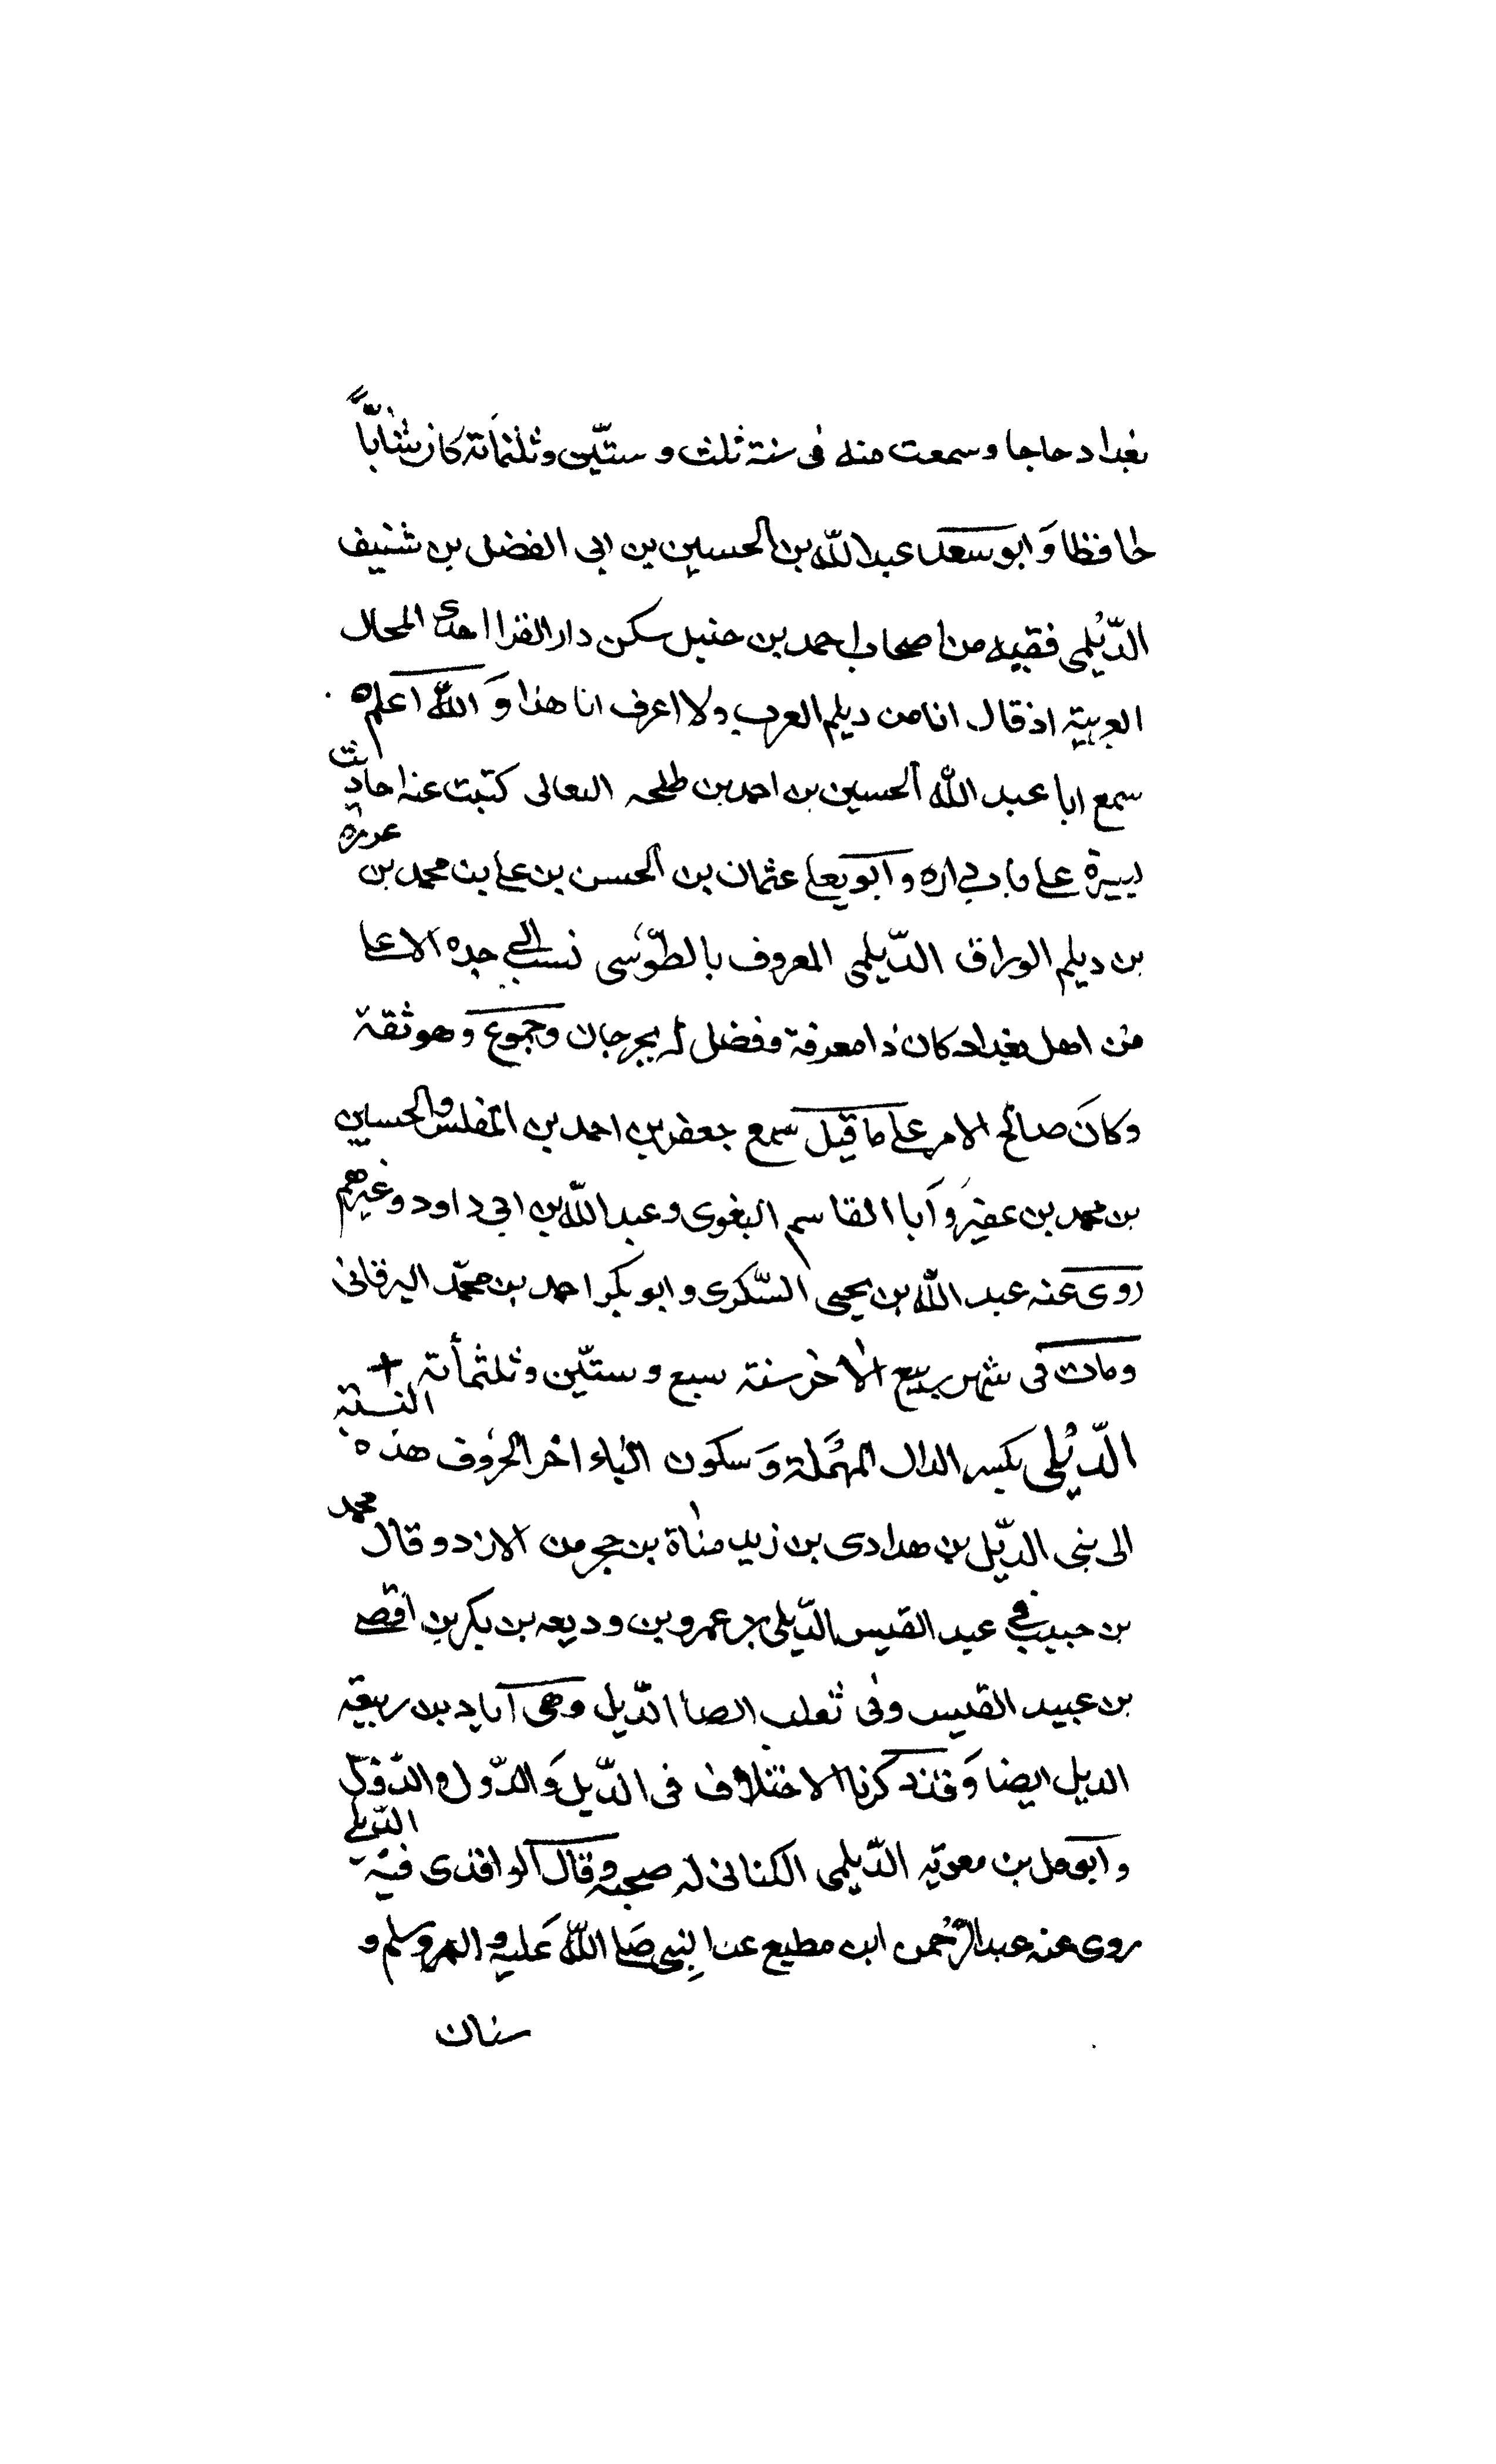 بغداد حاجا وسمعت منه فى سنة ثلث و ستّين وثلثمائة كان شابّاً
حافظا وَابو سعد عبد اللّه بن الحسين بن ابى الفضل بن شنيف
الدّيلمى فقيه من اصحاب احمد بن حنبل سكن دار القزا احدى المحال
الغربية اذ قال انا من ديلم العرب ولا اعرف انا هذا وَاللّه اَعلم ه
سمع ابا عبد اللّه الحسين بن احمد بن طلحه النعالى كتبت عنه احاديث
يسيرة على باب داره وابو يعلى عثمان بن الحسن بن على بن محمد بن عزرة
بن ديلم الوراق الدّيلمى المعروف بالطّوسى نسب الى جده الاعلى
من اهل بغداد كان ذا معرفة وفضل له بجرجان وجموع وهو ثقة
وكانَ صالح الامر على ما قيل سمع جعفر بن احمد بن المفلس والحسين
بن محمد بن عفير وَابا القاسم البغوى وعبد اللّه بن ابى داود وغيرهم
روى عنه عبد اللّه بن يحيى السّكرى وابو بكر احمد بن محمّد البرقانى
ومات فى شهر ربيع الاخر سنة سبع و ستّين وثلثمأتة +
الدّيْلى بكسر الدال المهمَلة وَسكون الياء اخر الحروف هذه النسبة
الى بنى الدّيل بن هدادى بن زيد مناة بن حجر من الازد وقال محمد
بن حبيب فى عبد القيس الدّيلى بن عمرو بن وديعه بن بكر بن افصى
بن عبيد القيس وفى ثعلب ايضا الدّيل وهى اياد بن ربيعة
الديل ايضا وَقد ذكرنا الاختلاف فى الدّيل وَالدّول والدّؤل
وابو مل بن معوية الدّيلمى الكنانى له صحبة وقال الواقدى فيه الدّيلى
روى عنه عبد الرّحمن ابن مطيع عن النبى صَلى اللّه عَليه واله وسلم و
سنان